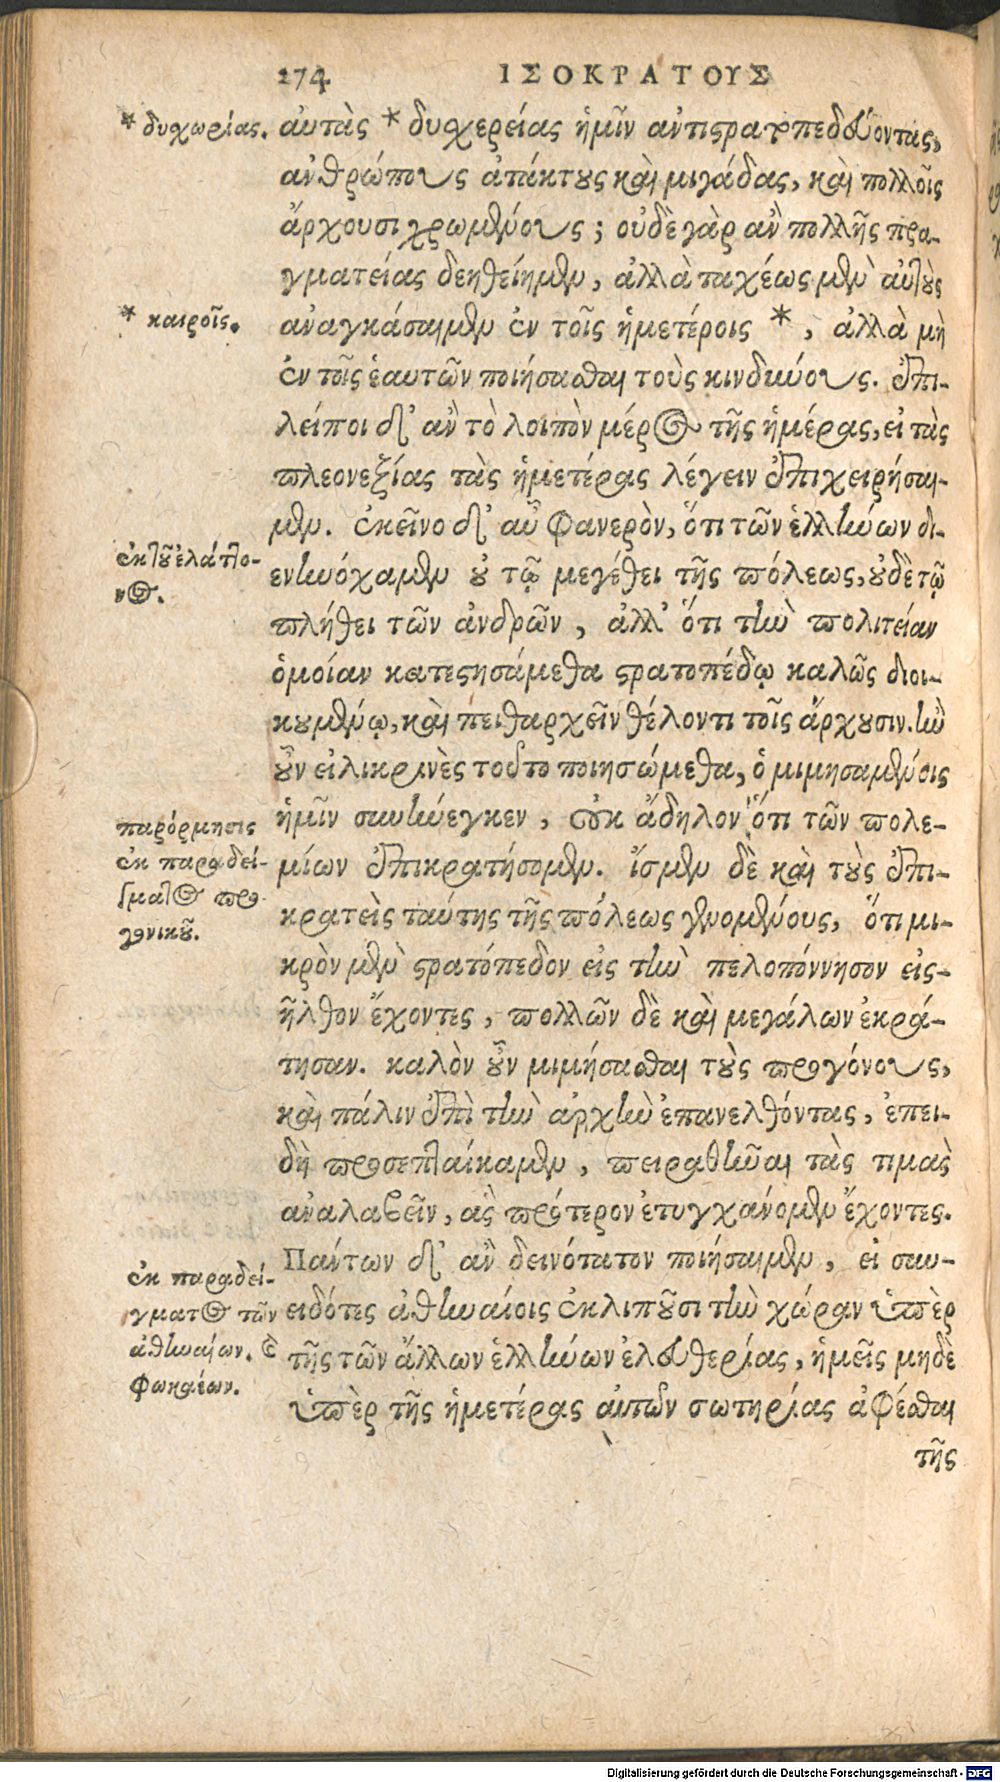 274 ΙΣΟΚΡΑΤΟΥΣ
* δυσχωρίας.
αὐτὰς * δυσχερείας ἡμῖν ἀντιστρατοπεδεύοντας,
ἀνθρώπους ἀτάκτους καὶ μιγάδας, καὶ πολλοῖς
ἄρχουσι χρωμένους; οὐδὲ γὰρ ἂν πολλῆς πρα-
γματείας δεηθείημεν, ἀλλὰ ταχέως μὲν αὐτοὺς
* καιροῖς.
ἀναγκάσαιμεν ἐν τοῖς ἡμετέροις *, ἀλλὰ μὴ
ἐν τοῖς ἑαυτῶν ποιήσασθαι τοὺς κινδύνους. ἐπι-
λείποι δ' ἂν τὸ λοιπὸν μέρος τῆς ἡμέρας, εἰ τὰς
πλεονεξίας τὰς ἡμετέρας λέγειν ἐπιχειρήσαι-
μεν. ἐκεῖνο δ' αὖ φανερὸν, ὅτι τῶν ἑλλήνων δι-
ἐκ τοῦ ἐλάττο-
νος.
ενηνόχαμεν οὐ τῷ μεγέθει τῆς πόλεως, οὐδὲ τῷ
πλήθει τῶν ἀνδρῶν, ἀλλ' ὅτι τὴν πολιτείαν
ὁμοίαν κατεστησάμεθα στρατοπέδῳ καλῶς διοι-
κουμένῳ, καὶ πειθαρχεῖν θέλοντι τοῖς ἄρχουσιν. ἢν
οὖν εἰλικρινὲς τοῦτο ποιησώμεθα, ὃ μιμησαμένοις
παρόρμησις
ἐκ παραδεί-
γματος προ
γονικοῦ.
ἡμῖν συνήνεγκεν, οὐκ ἄδηλον ὅτι τῶν πολε-
μίων ἐπικρατήσομεν. ἴσμεν δὲ καὶ τοὺς ἐπι-
κρατεῖς ταύτης τῆς πόλεως γενομένους, ὅτι μι-
κρὸν μὲν στρατόπεδον εἰς τὴν πελοπόννησον εἰς-
ῆλθον ἔχοντες, πολλῶν δὲ καὶ μεγάλων ἐκρά-
τησαν. καλὸν οὖν μιμήσασθαι τοὺς προγόνους,
καὶ πάλιν ἐπὶ τὴν ἀρχὴν ἐπανελθόντας, ἐπει-
δὴ προσεπταίκαμεν, πειραθῆναι τὰς τιμὰς
ἀναλαβεῖν, ἃς πρότερον ἐτυγχάνομεν ἔχοντες.
ἐκ παραδεί-
γματος τῶν
ἀθηναίων. καὶ
φωκαέων.
Πάντων δ' ἂν δεινότατον ποιήσαιμεν, εἰ συν-
ειδότες ἀθηναίοις ἐκλιποῦσι τὴν χώραν ὑπὲρ
τῆς τῶν ἄλλων ἑλλήνων ἐλευθερίας, ἡμεῖς μηδὲ
ὑπὲρ τῆς ἡμετέρας αὐτῶν σωτηρίας ἀφέσθαι
τῆς
Digitalisierung gefördert durch die Deutsche Forschungsgemeinschaft - DFG